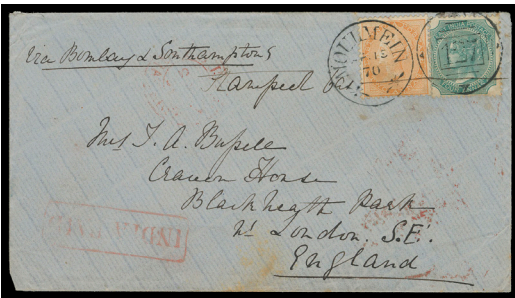 Via Bombay & Southampton
MOULMEIN
70
Mrs T. A.
Craven House
Blackheath Park
Nr London, S.E.
England
INDIA PAID